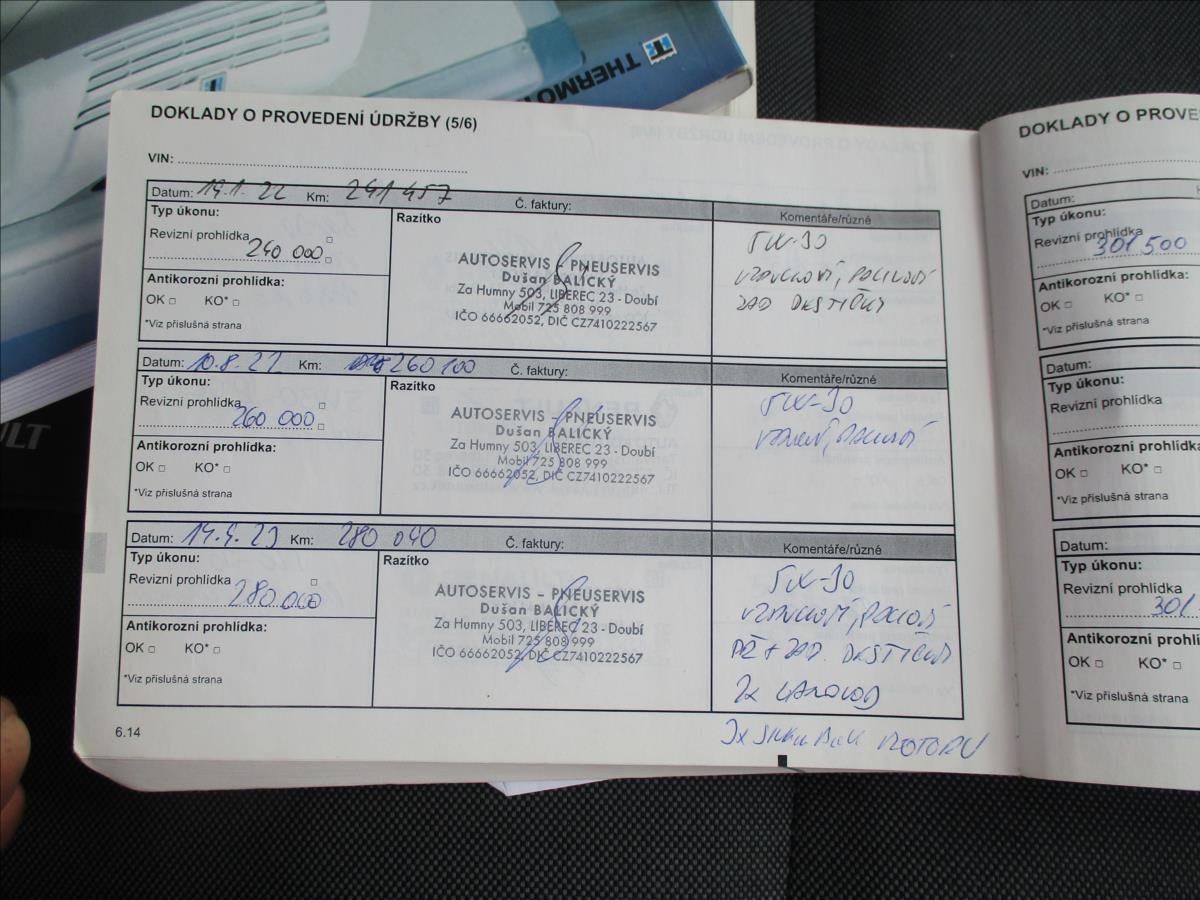 THERMO
DOKLADY O PROVEDENÍ ÚDRŽBY (5/6)
VIN:
Datum: 19.1.22 Km: 241 457 Č. faktury:
Typ úkonu:
Revizní prohlídka
240 000
Antikorozní prohlídka:
OK KO*
*Viz příslušná strana
Razítko
AUTOSERVIS - PNEUSERVIS
Dušan BALICKÝ
Za Humny 503, LIBEREC 23 - Doubí
Mobil 725 808 999
IČO 66662052, DIČ CZ7410222567
Komentáře/různé
5W-30
ZAD DESTIČKY
Datum: 10.8.22 Km: 260 100 Č. faktury:
Typ úkonu:
Revizní prohlídka
260 000
Antikorozní prohlídka:
OK KO*
*Viz příslušná strana
Razítko
AUTOSERVIS - PNEUSERVIS
Dušan BALICKÝ
Za Humny 503, LIBEREC 23 - Doubí
Mobil 725 808 999
IČO 66662052, DIČ CZ7410222567
Komentáře/různé
5W-30
Datum: 14.4.23 Km: 280 040 Č. faktury:
Typ úkonu:
Revizní prohlídka
280 000
Antikorozní prohlídka:
OK KO*
*Viz příslušná strana
Razítko
AUTOSERVIS - PNEUSERVIS
Dušan BALICKÝ
Za Humny 503, LIBEREC 23 - Doubí
Mobil 725 808 999
IČO 66662052, DIČ CZ7410222567
Komentáře/různé
5W-30
ZAD. DESTIČKY
MOTORU
6.14
DOKLADY O PROVE
VIN:
Datum:
Typ úkonu:
Revizní prohlídka
301 500
Antikorozní prohlídka:
OK KO*
*Viz příslušná strana
Datum:
Typ úkonu:
Revizní prohlídka
Antikorozní prohlídka:
OK KO*
*Viz příslušná strana
Datum:
Typ úkonu:
Revizní prohlídka
301
Antikorozní prohlí
OK KO*
*Viz příslušná strana